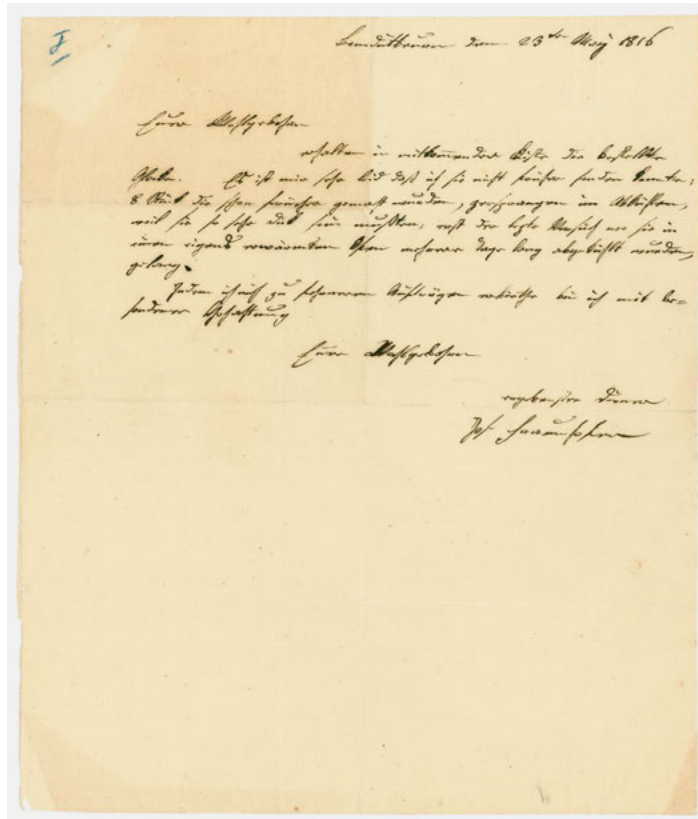 I
Benedictbeuern den 23ten May 1816
Euer Wohlgebohren
erhalten in mitkommender Kiste die bestellte
Gloken. Es ist mir sehr leid daß ich sie nicht früher senden konnte;
8 Stück die schon früher gemacht wurden, zersprangen im Abkühlen,
weil sie so sehr dick sein mußten; erst der lezte Versuch wo sie in
einem eigends erwärmten Ofen mehrere Tage lang abgekühlt wurden,
gelang.
Indem ich mich zu ferneren Aufträgen erbiethe bin ich mit be=
sonderer Hochachtung
Euer Wohlgebohren
ergebenster Diener
Jos Fraunhofer